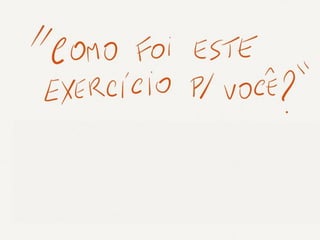 "COMO FOI ESTE
EXERCÍCIO P/ VOCÊ?"